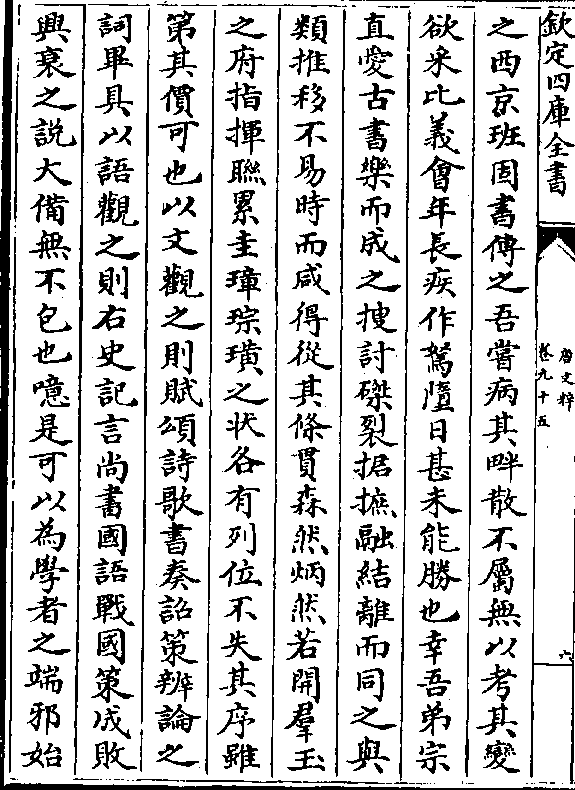 欽定四庫全書
唐文粹
卷九十五
六
之西京班固書傳之吾嘗病其畔散不屬無以考其變
欲采比義會年長疾作駑墮日甚未能勝也幸吾弟宗
直愛古書樂而成之搜討磔裂捃摭融結離而同之與
類推移不易時而咸得從其條貫森然炳然若開羣玉
之府指揮聯累圭璋琮璜之状各有列位不失其序雖
第其價可也以文觀之則賦頌詩歌書奏詔策辨論之
詞畢具以語觀之則右史記言尚書國語戰國策成敗
興衰之説大備無不包也噫是可以為學者之端邪始